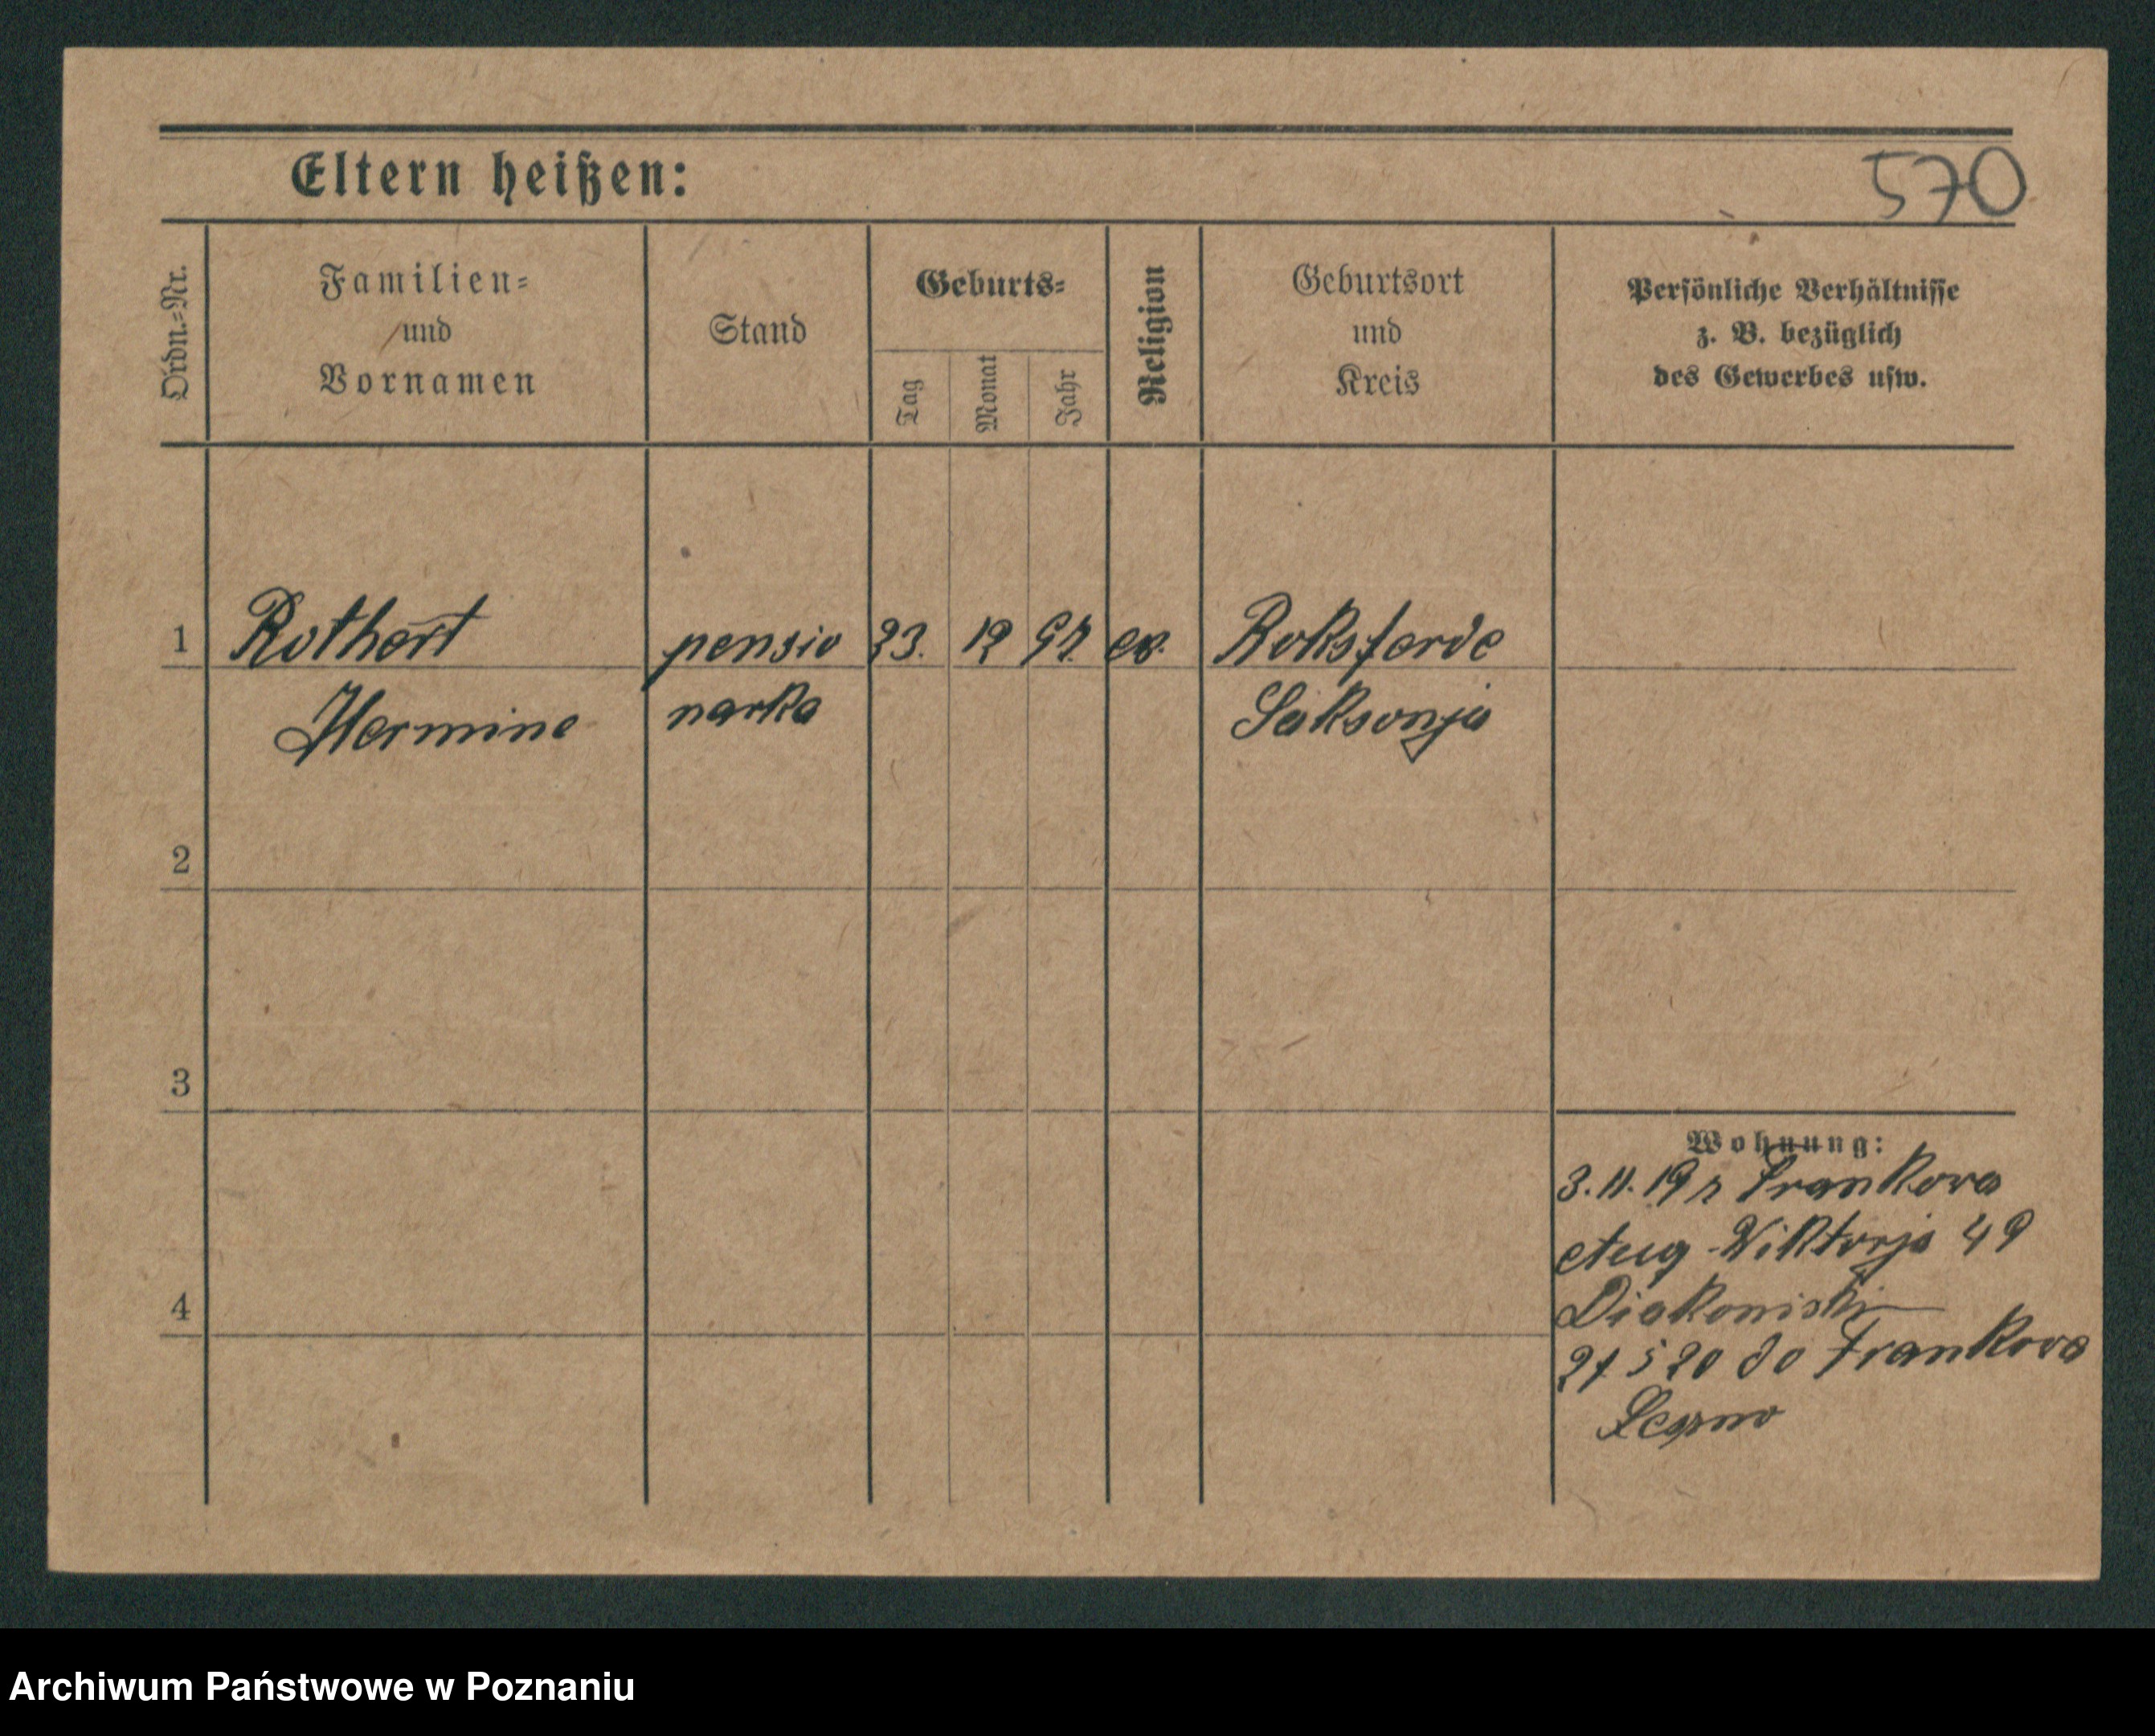 Eltern heißen:
570
Ordn.-Nr.
Familien-
und
Vornamen
Stand
Geburts-
Tag
Monat
Jahr
Religion
Geburtsort
und
Kreis
Persönliche Verhältnisse
z. B. bezüglich
des Gewerbes usw.
1 Rothert pensio 23. 12 ew. Roksforde
Hermine narka Saksonja
2
3
4
Wohnung:
3.11.19 z Frankova
Aug-Wiktorja 49
Diakoniski
21 5 20 do Frankova
Leszno
Archiwum Państwowe w Poznaniu